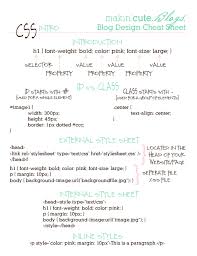 makin cute Blogs
CSS INTRO
Blog Design Cheat Sheet
INTRODUCTION
h1 { font-weight: bold; color: pink; font-size: large; }
SELECTOR VALUE VALUE VALUE
PROPERTY PROPERTY PROPERTY
ID vs. CLASS
ID STARTS WITH #
CLASS STARTS WITH .
#image1 {
width: 300px;
height: 45px;
border: 1px dotted #ccc;
}
.center {
text-align: center;
}
EXTERNAL STYLE SHEET
<head>
<link rel="stylesheet" type="text/css" href="stylesheet.css" />
</head>
LOCATED IN THE
HEAD OF YOUR
WEBSITE/PAGE
h1 { font-weight: bold; color: pink; font-size: large; }
p { margin: 10px; }
body { background-image:url("image_bg.jpg"); }
SEPERATE FILE
CSS FILE
INTERNAL STYLE SHEET
<head>
<style type="text/css">
h1 { font-weight: bold; color: pink; }
p { margin: 10px; }
body { background-image:url("image_bg.jpg"); }
</style>
</head>
INLINE STYLES
<p style="color: pink; margin: 10px">This is a paragraph </p>